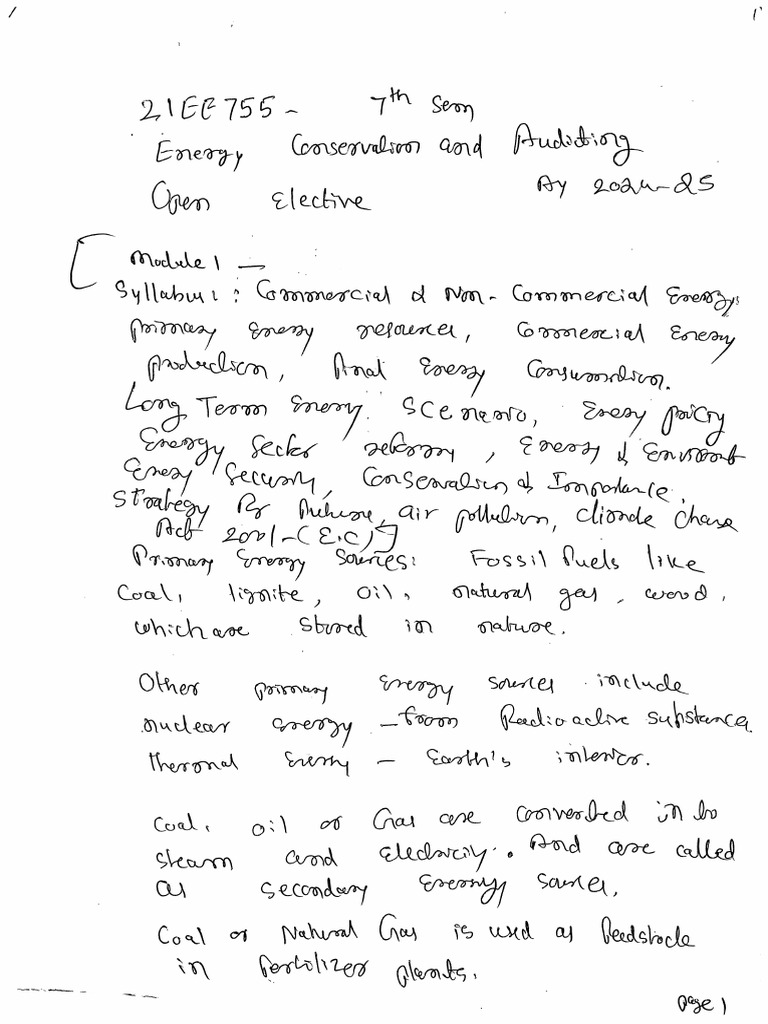 21EE755 - 7th Sem
Energy Conservation and Auditing
Open Elective AY 2024-25
[ Module 1 -
Syllabus : Commercial & Non-Commercial Energy,
primary Energy resources, Commercial Energy
production, Final Energy Consumption.
Long Term Energy Scenario, Energy policy
Energy Sector reforms, Energy & Environment
Energy Security, Conservation & Importance,
Strategy for Future, air pollution, climate change
Act 2001-(E.C)]
Primary Energy Sources: Fossil fuels like
Coal, lignite, oil, natural gas, wood,
which are stored in nature.
Other primary energy sources include
nuclear energy - from Radioactive substance
thermal Energy - Earth's interior.
Coal, oil or Gas are converted in to
steam and Electricity. And are called
as secondary Energy sources,
Coal or Natural Gas is used as feedstock
in fertilizer plants.
Page 1